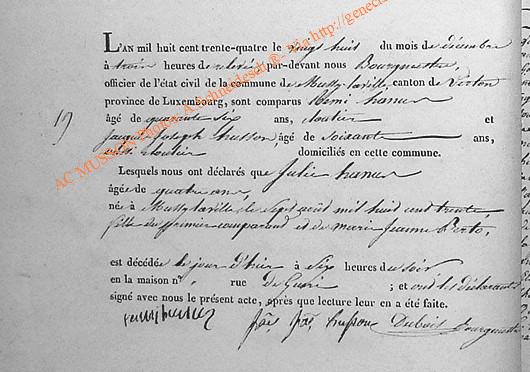 L'AN mil huit cent trente-quatre le vingt huit du mois de décembre
à trois heures de relevée par-devant nous Bourgmestre,
officier de l'état civil de la commune de Mussy-la-ville, canton de Virton
province de Luxembourg, sont comparus Remi hanus
19 âgé de quarante six ans, cloutier et
jacques joseph husson, âgé de soixante ans,
aussi cloutier domiciliés en cette commune.
Lesquels nous ont déclarés que Julie hanus
âgée de quatre ans,
née à Mussy-la-ville le Sept août mil huit cent trente,
fille du premier comparant et de marie jeanne
est décédée le jour d'hier à Six heures du Soir
en la maison n° rue ; et ont les déclarants
signé avec nous le présent acte, après que lecture leur en a été faite.
husson Dubois bourgmestre
AC MUSSON Photos A. Schneidesch ®- via http://genec